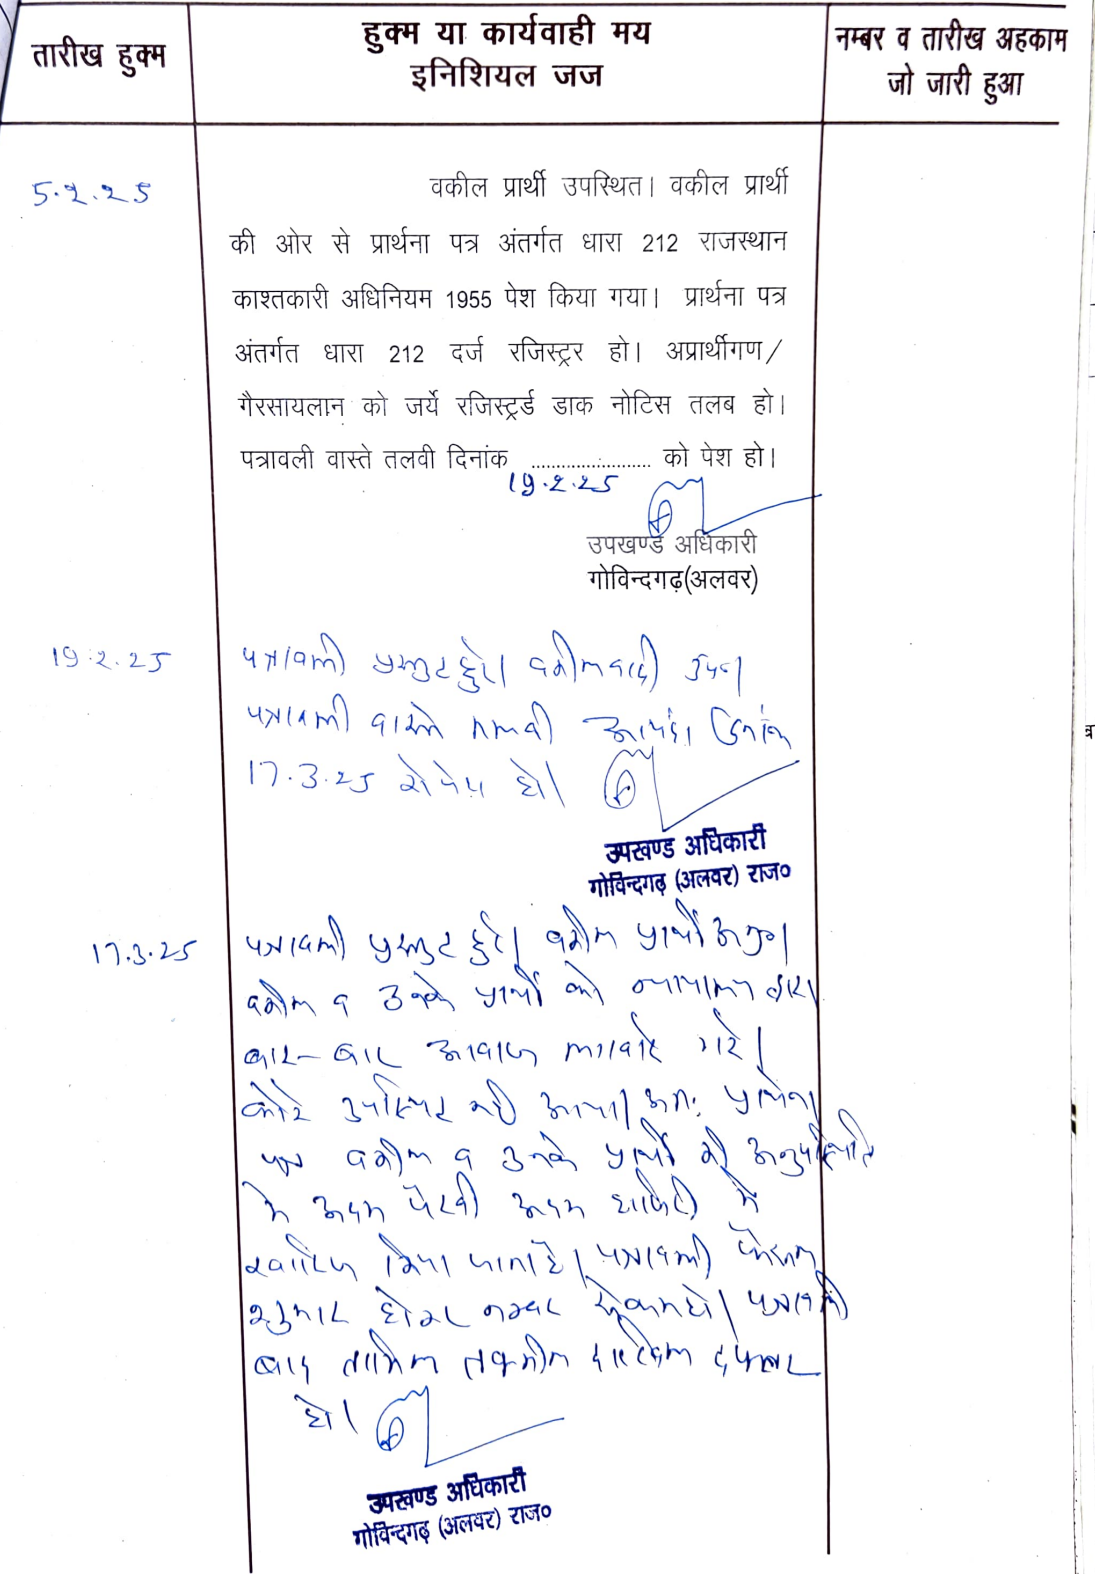 तारीख हुक्म
हुक्म या कार्यवाही मय
इनिशियल जज
नम्बर व तारीख अहकाम
जो जारी हुआ
5.2.25
वकील प्रार्थी उपस्थित। वकील प्रार्थी
की ओर से प्रार्थना पत्र अंतर्गत धारा 212 राजस्थान
काश्तकारी अधिनियम 1955 पेश किया गया। प्रार्थना पत्र
अंतर्गत धारा 212 दर्ज रजिस्ट्रर हो। अप्रार्थीगण/
गैरसायलान् को जर्ये रजिस्ट्रर्ड डाक नोटिस तलब हो।
पत्रावली वास्ते तलवी दिनांक ........................ को पेश हो।
19.2.25
उपखण्ड अधिकारी
गोविन्दगढ़(अलवर)
19.2.25
पत्रावली प्रस्तुत हुई। वकील वादी उप०।
पत्रावली वास्ते तलवी दिनांक
17.3.25 को पेश हो।
उपखण्ड अधिकारी
गोविन्दगढ़ (अलवर) राज०
17.3.25
पत्रावली प्रस्तुत हुई। वकील प्रार्थी अनु०।
वकील व उनके प्रार्थी को न्यायालय द्वारा
बार-बार आवाज लगवाई गई।
कोई उपस्थित नही आया। अतः प्रार्थना
पत्र वकील व उनके प्रार्थी की अनुपस्थिति
मे अदम पैरवी अदम हाजिरी मे
खारिज किया जाता है। पत्रावली फैसल
शुमार होकर नम्बर से कम हो। पत्रावली
बाद तामिल तकमील दाखिल दफ्तर
हो।
उपखण्ड अधिकारी
गोविन्दगढ़ (अलवर) राज०